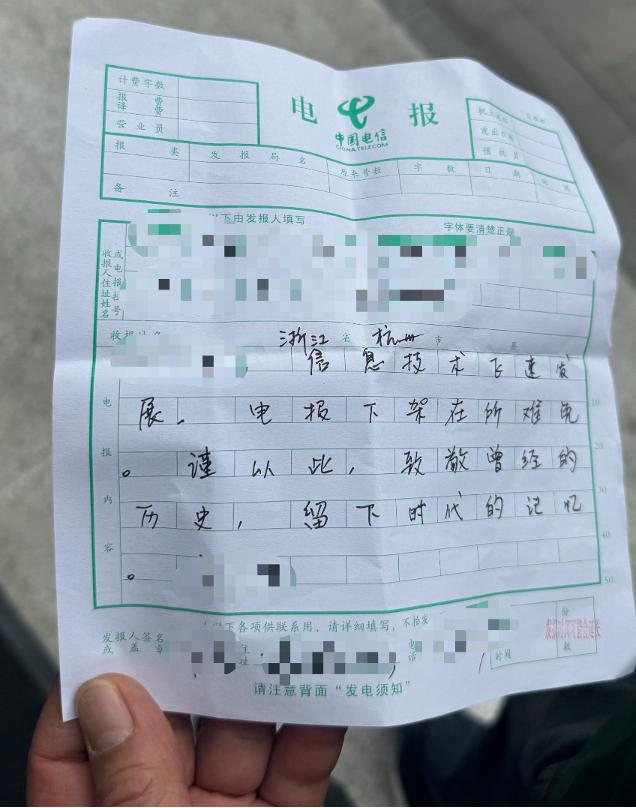 计费字数
报费
译费
营业员
电报
中国电信
CHINA TELECOM
报类 发报局名 字数 日期
备注
以下由发报人填写 字体要清楚正规
收报人住址姓名
或电报挂号
浙江省 杭州市
信息技术飞速发
电报内容
展, 电报下架在所难免 10
。谨以此, 致敬曾经的 20
历史, 留下时代的记忆 30
。 40
50
以下各项供联系用、请详细填写,不拍发
发报人签名
或盖章
住址
电话
时间
份数
请注意背面“发电须知”